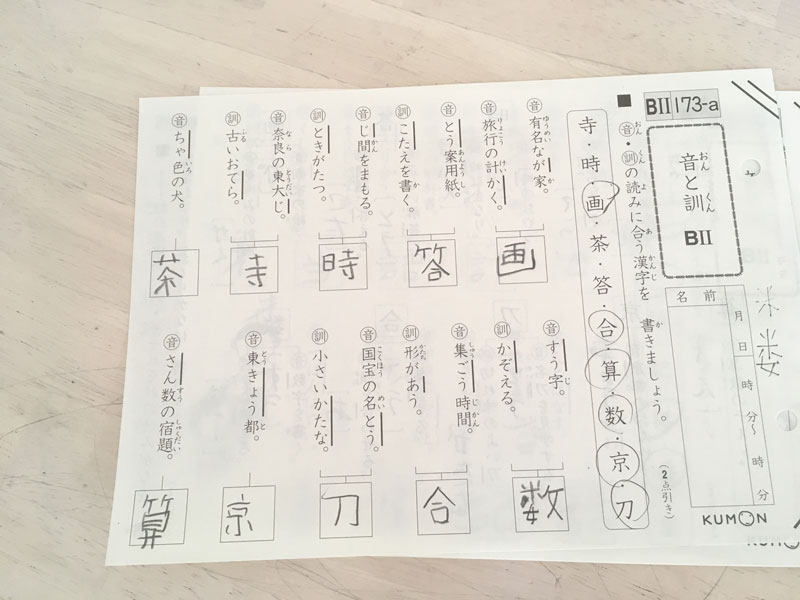 BII 173-a
音と訓
BII
名前
月 日
時 分〜 時 分
KUMON
米 数
■
音・訓の読みに合う漢字を 書きましょう。
(2点引き)
寺・時・画・茶・答・合・算・数・京・刀
音 有名なが家。
音 旅行の計かく。
画
音 とう案用紙。
訓 こたえを書く。
答
音 じ間をまもる。
訓 ときがたつ。
時
音 奈良の東大じ。
訓 古いおてら。
寺
音 ちゃ色の犬。
茶
音 すう字。
訓 かぞえる。
数
音 集ごう時間。
訓 形があう。
合
音 国宝の名とう。
訓 小さいかたな。
刀
音 東きょう都。
京
音 さん数の宿題。
算